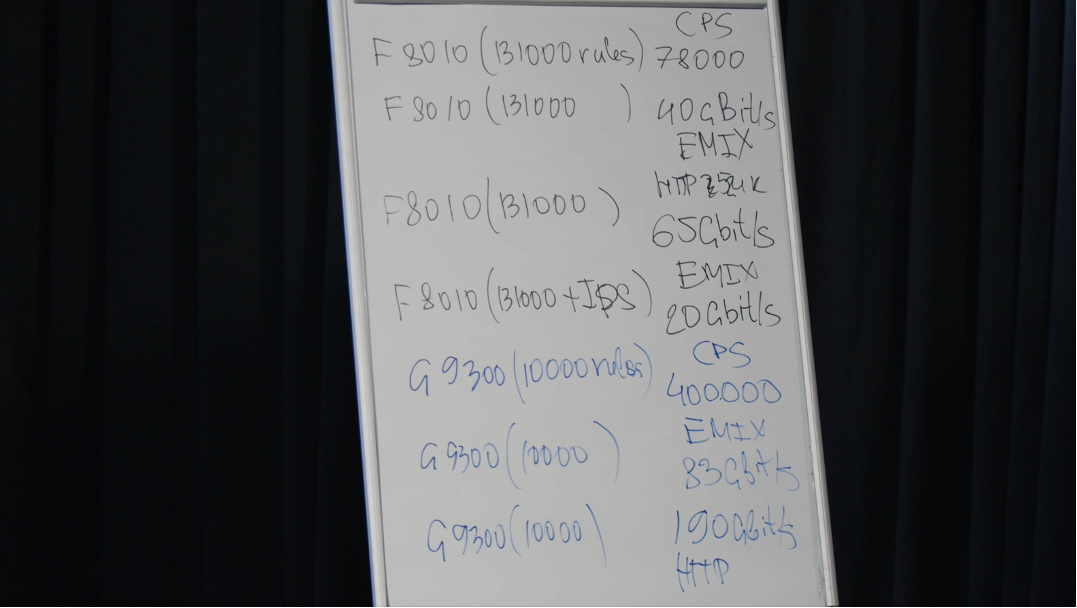 CPS
F8010 (131000 rules) 78000
F8010 (131000 ) 40GBit/s
EMIX
HTTP
F8010 (131000 )
65Gbit/s
EMIX
F8010 (131000 + IPS)
20Gbit/s
CPS
G9300 (10000 rules)
400.000
EMIX
G9300 (10000 )
83Gbit/s
G9300 (10000 ) 190Gbit/s
HTTP